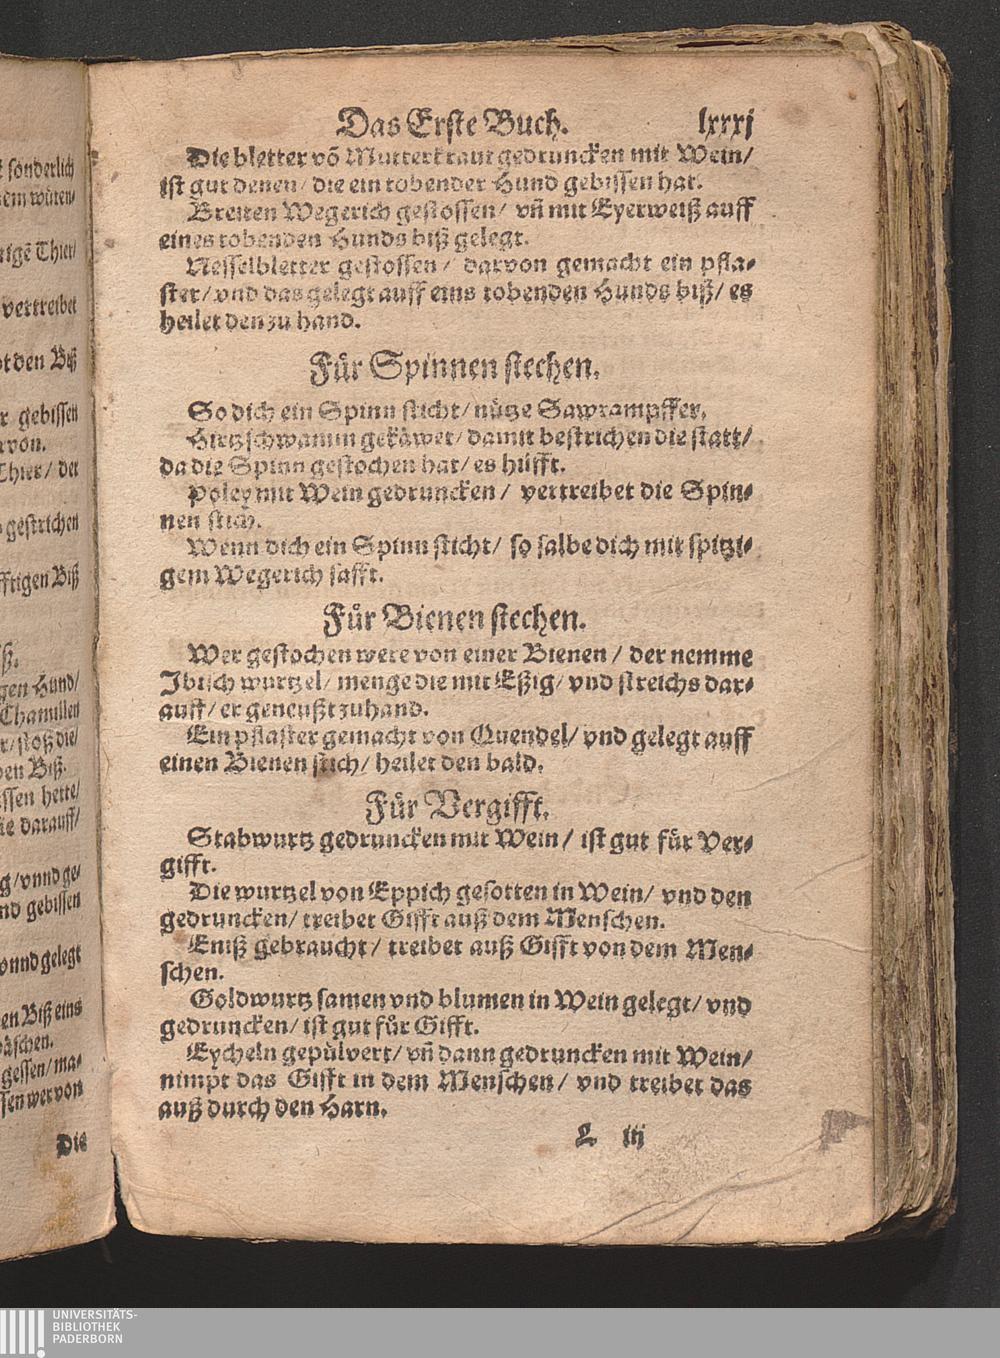 t sonderlich
dem wüten⸗
tigẽ Thier/
vertreibet
bt den Biß
r gebissen
rvon.
Thier/ der
gestrichen
fftigen Biß
ß.
gen Hund/
Chamillen
r/ stoß die/
den Biß.
issen hette/
die darauff/
g/ vnnd ge⸗
nd gebissen
vnnd gelegt
en Biß eins
äschen.
gessen/ ma⸗
ssen wer von
Die
Das Erste Buch. lxxxj
Die bletter võ Mutterkraut gedruncken mit Wein/
ist gut denen/ die ein tobender Hund gebissen hat.
Breiten Wegerich gestossen/ vñ mit Eyerweiß auff
eines tobenden Hunds biß gelegt.
Nesselbletter gestossen/ darvon gemacht ein pfla⸗
ster/ vnd das gelegt auff eins tobenden Hunds biß/ es
heilet den zu hand.
Für Spinnen stechen.
So dich ein Spinn sticht/ nütze Sawrampffer.
Hirtzschwamm gekäwet/ damit bestrichen die statt/
da die Spinn gestochen hat/ es hilfft.
Poley mit Wein gedruncken/ vertreibet die Spin⸗
nen stich.
Wenn dich ein Spinn sticht/ so salbe dich mit spitzi⸗
gem Wegerich safft.
Für Bienen stechen.
Wer gestochen were von einer Bienen/ der nemme
Ibisch wurtzel/ menge die mit Eßig/ vnd streichs dar⸗
auff/ er geneußt zuhand.
Ein pflaster gemacht von Quendel/ vnd gelegt auff
einen Bienen stich/ heilet den bald.
Für Vergifft.
Stabwurtz gedruncken mit Wein/ ist gut für Ver⸗
gifft.
Die wurtzel von Eppich gesotten in Wein/ vnd den
gedruncken/ treibet Gifft auß dem Menschen.
Eniß gebraucht/ treibet auß Gifft von dem Men⸗
schen.
Goldwurtz samen vnd blumen in Wein gelegt/ vnd
gedruncken/ ist gut für Gifft.
Eycheln gepülvert/ vñ dann gedruncken mit Wein/
nimpt das Gifft in dem Menschen/ vnd treibet das
auß durch den Harn.
L iij
UNIVERSITÄTS-
BIBLIOTHEK
PADERBORN